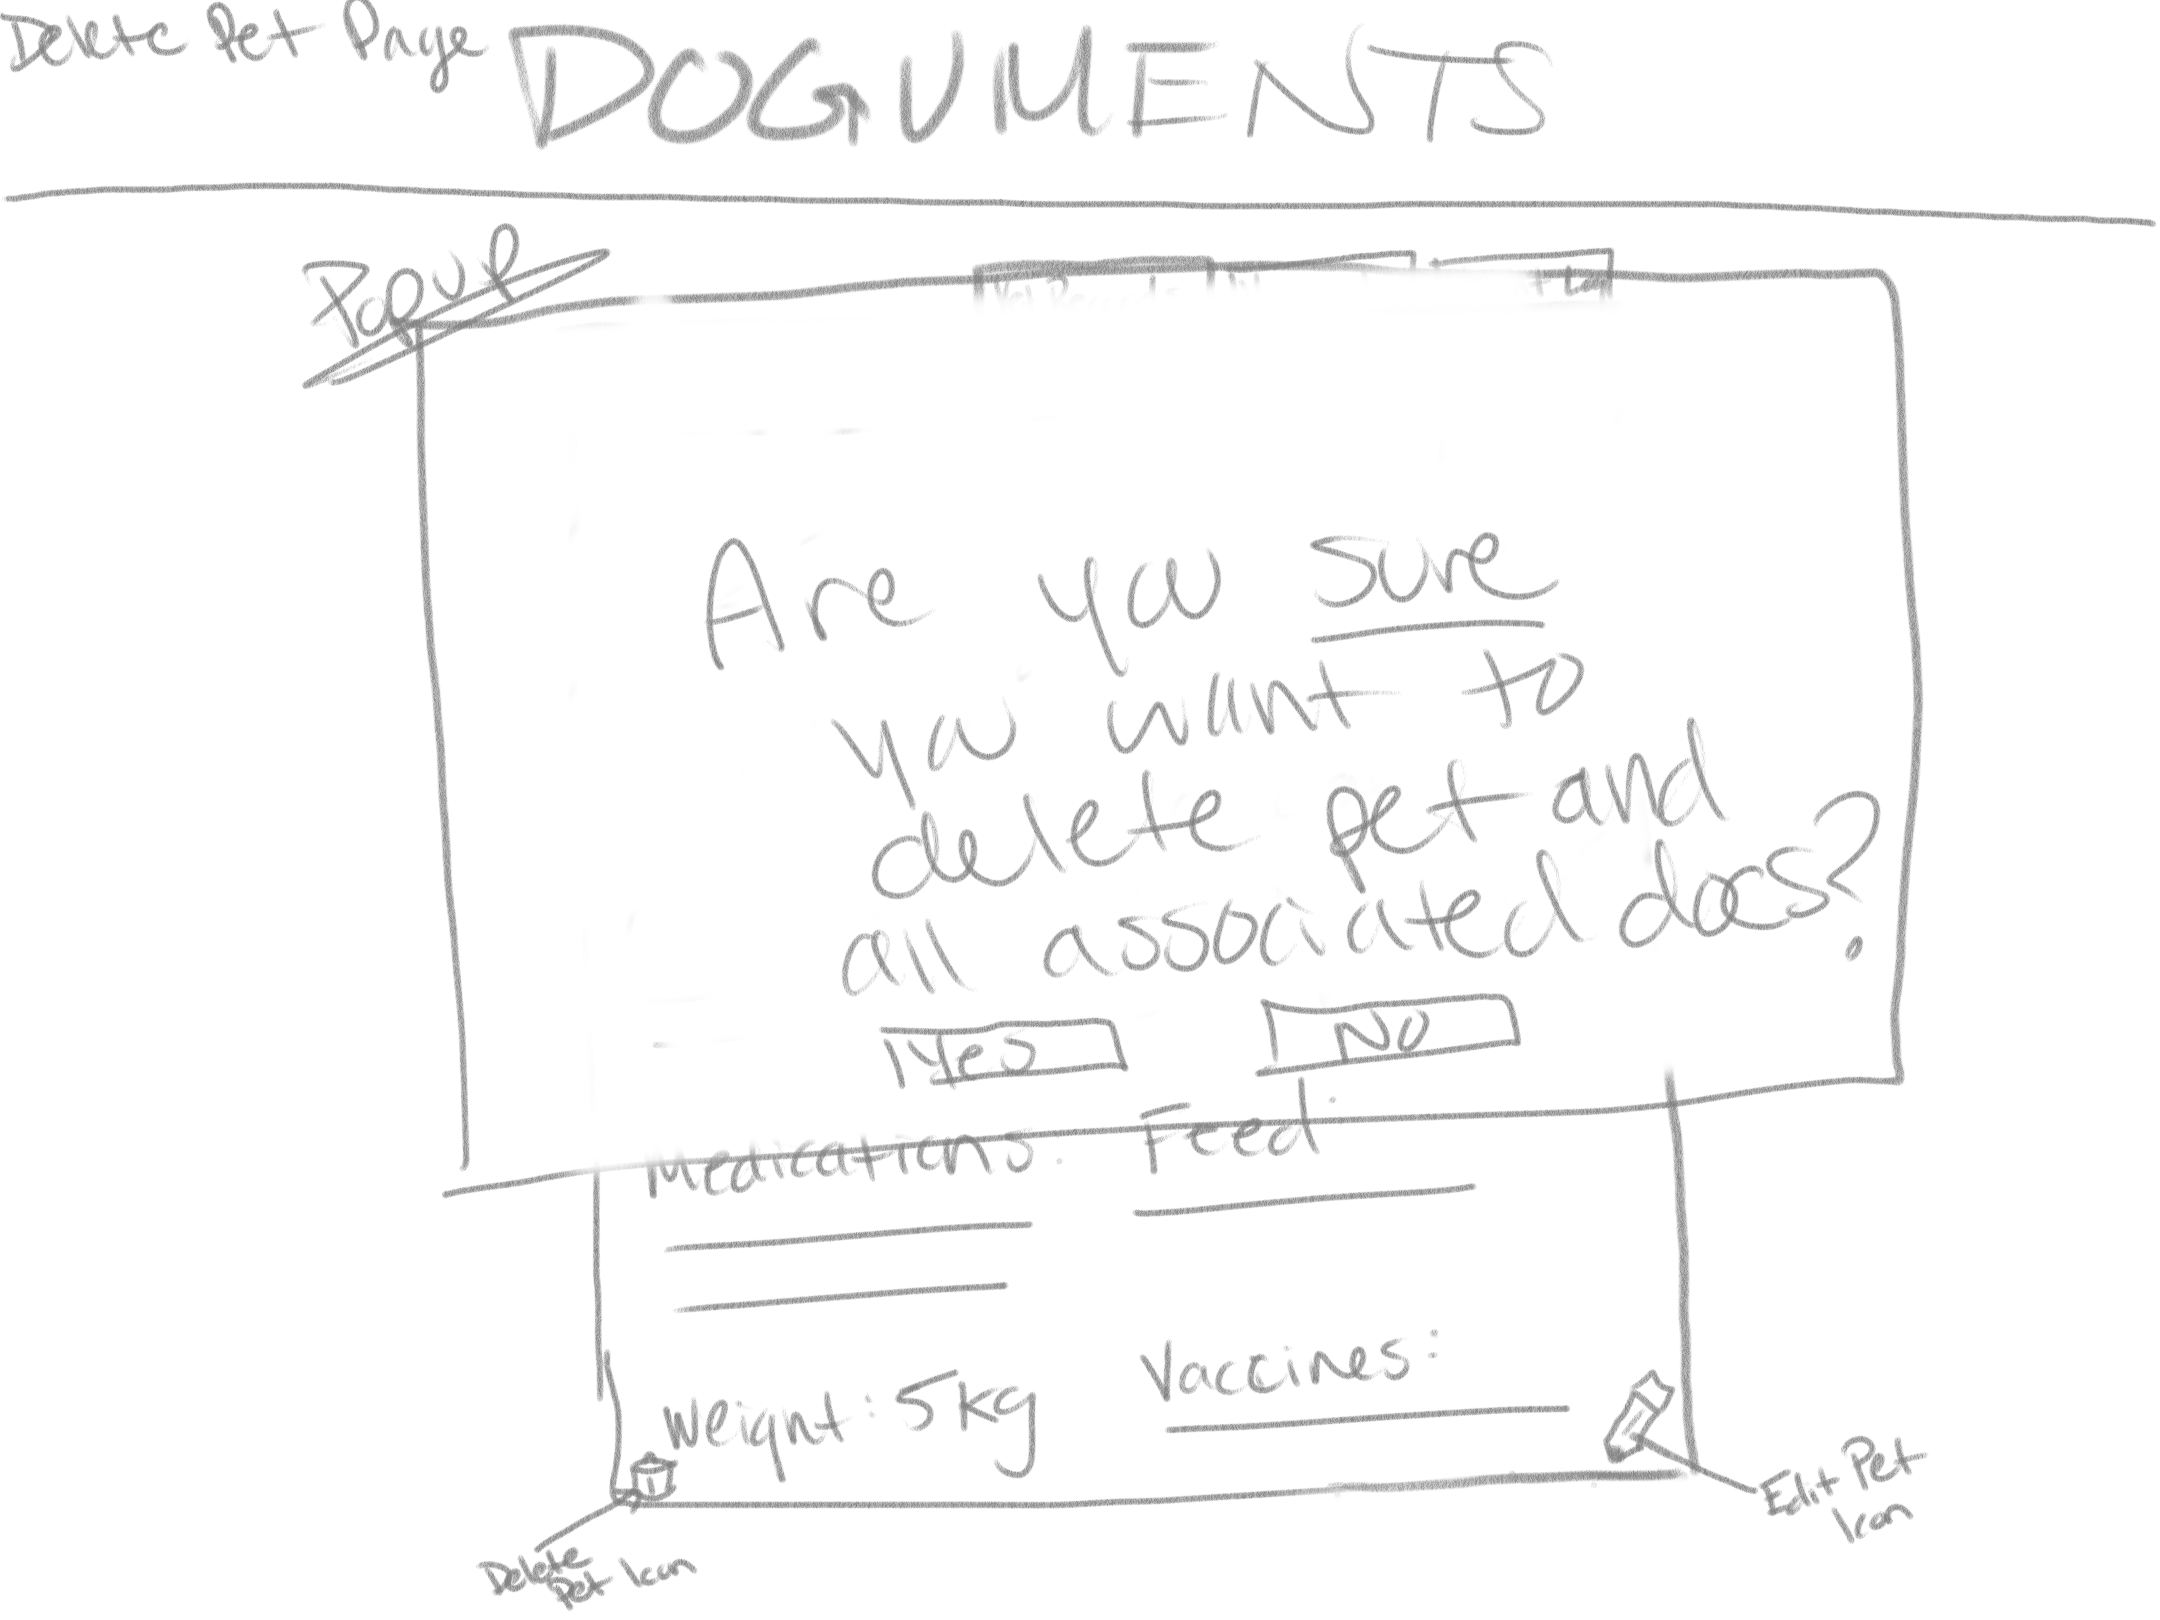 Delete Pet Page
DOGUMENTS
Popup
Are you sure
you want to
delete pet and
all associated docs?
Yes
No
Medications:
Feed
Weight: 5kg
Vaccines:
Delete
Pet Icon
Edit Pet
Icon